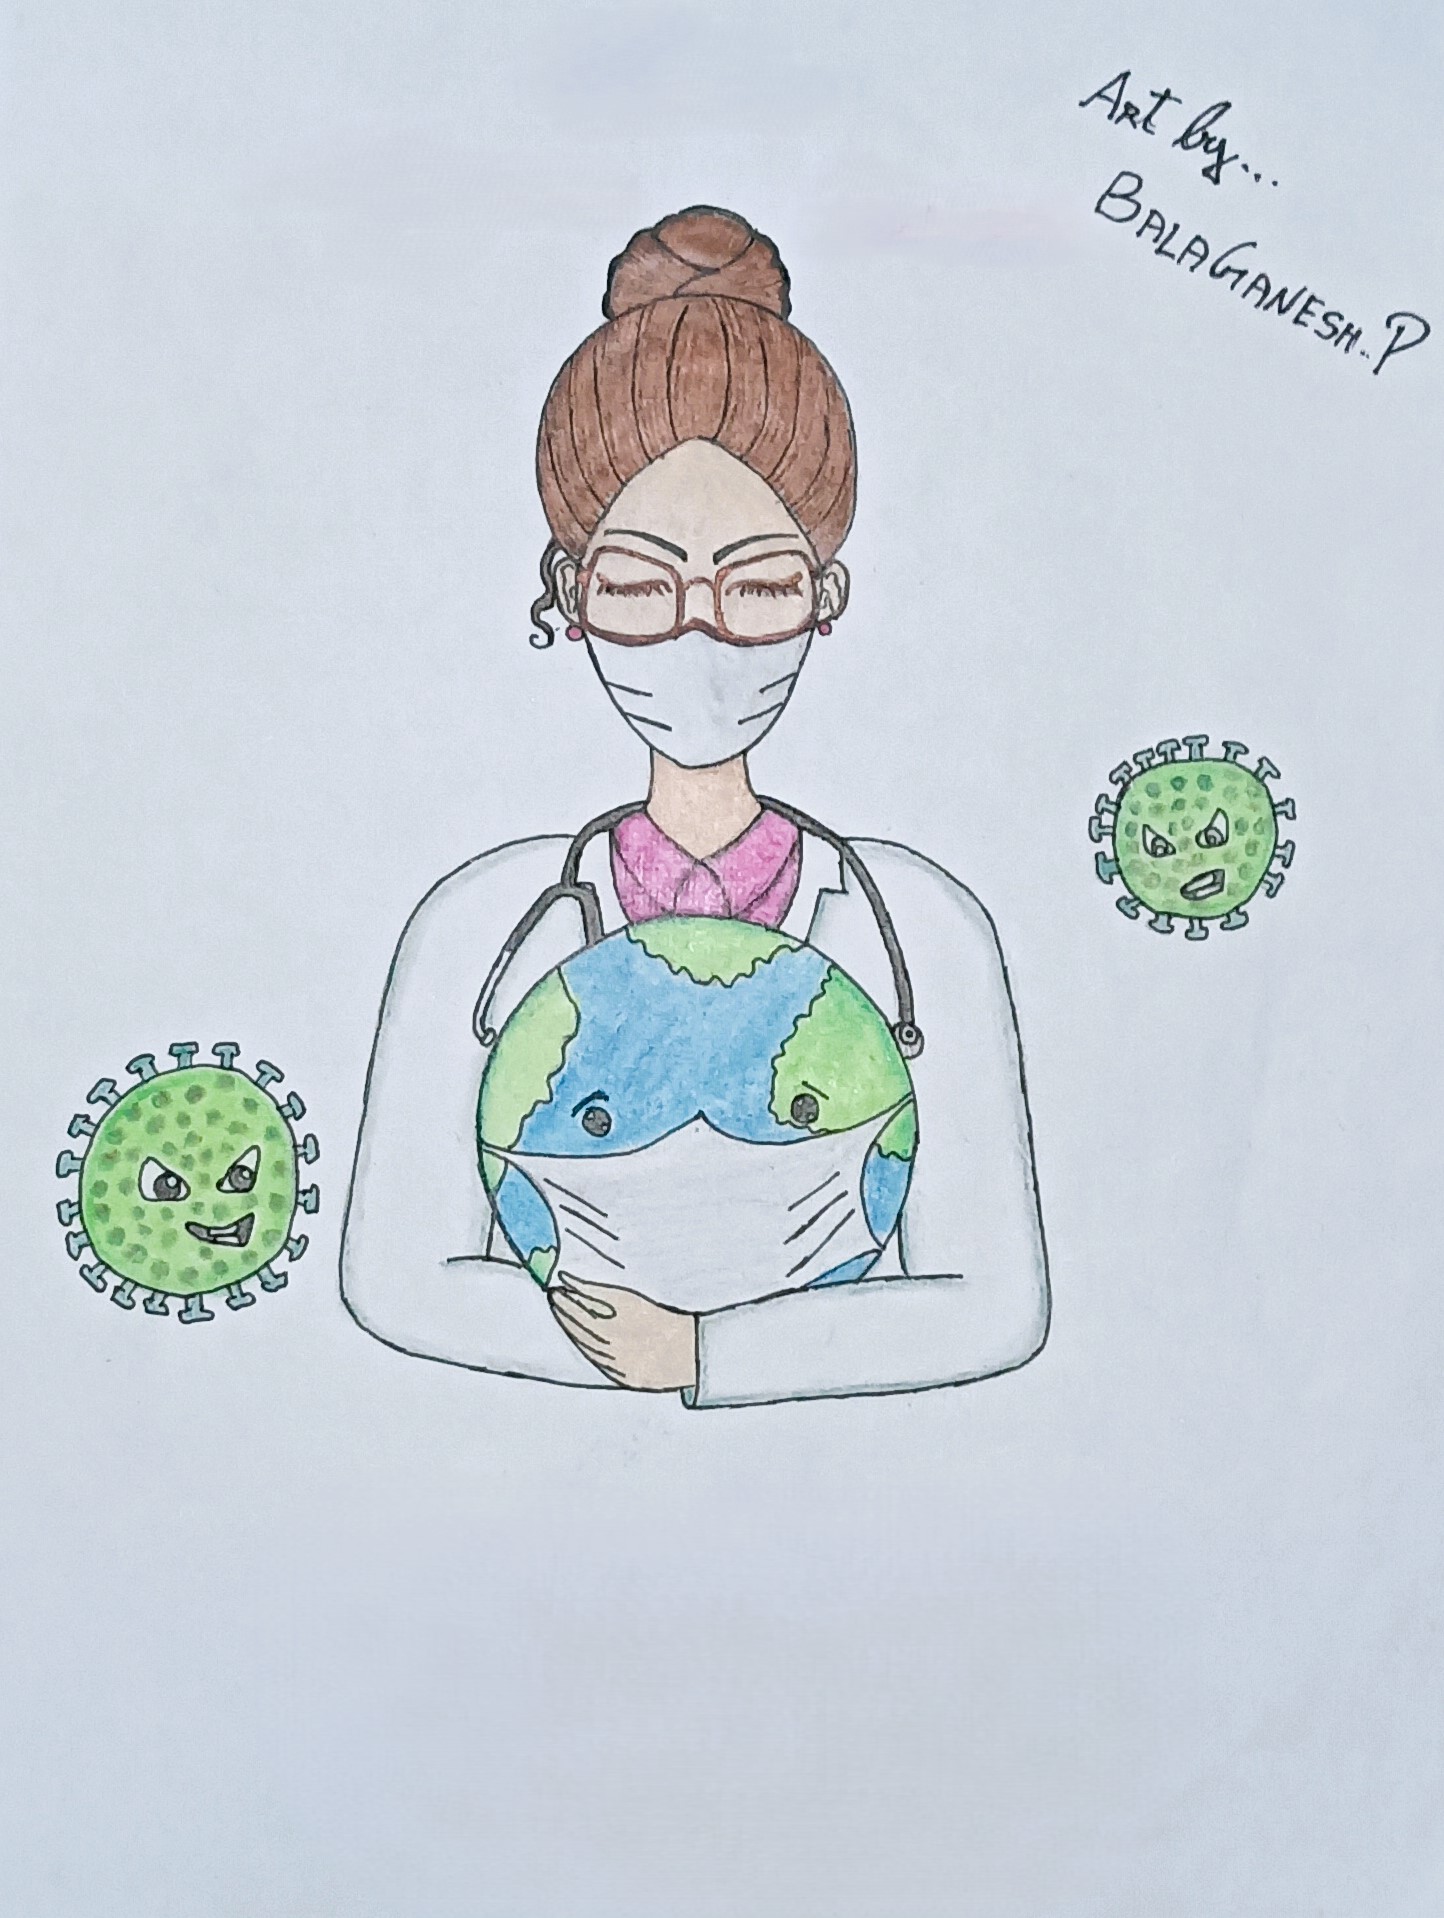 Art by...
BALAGANESH..P